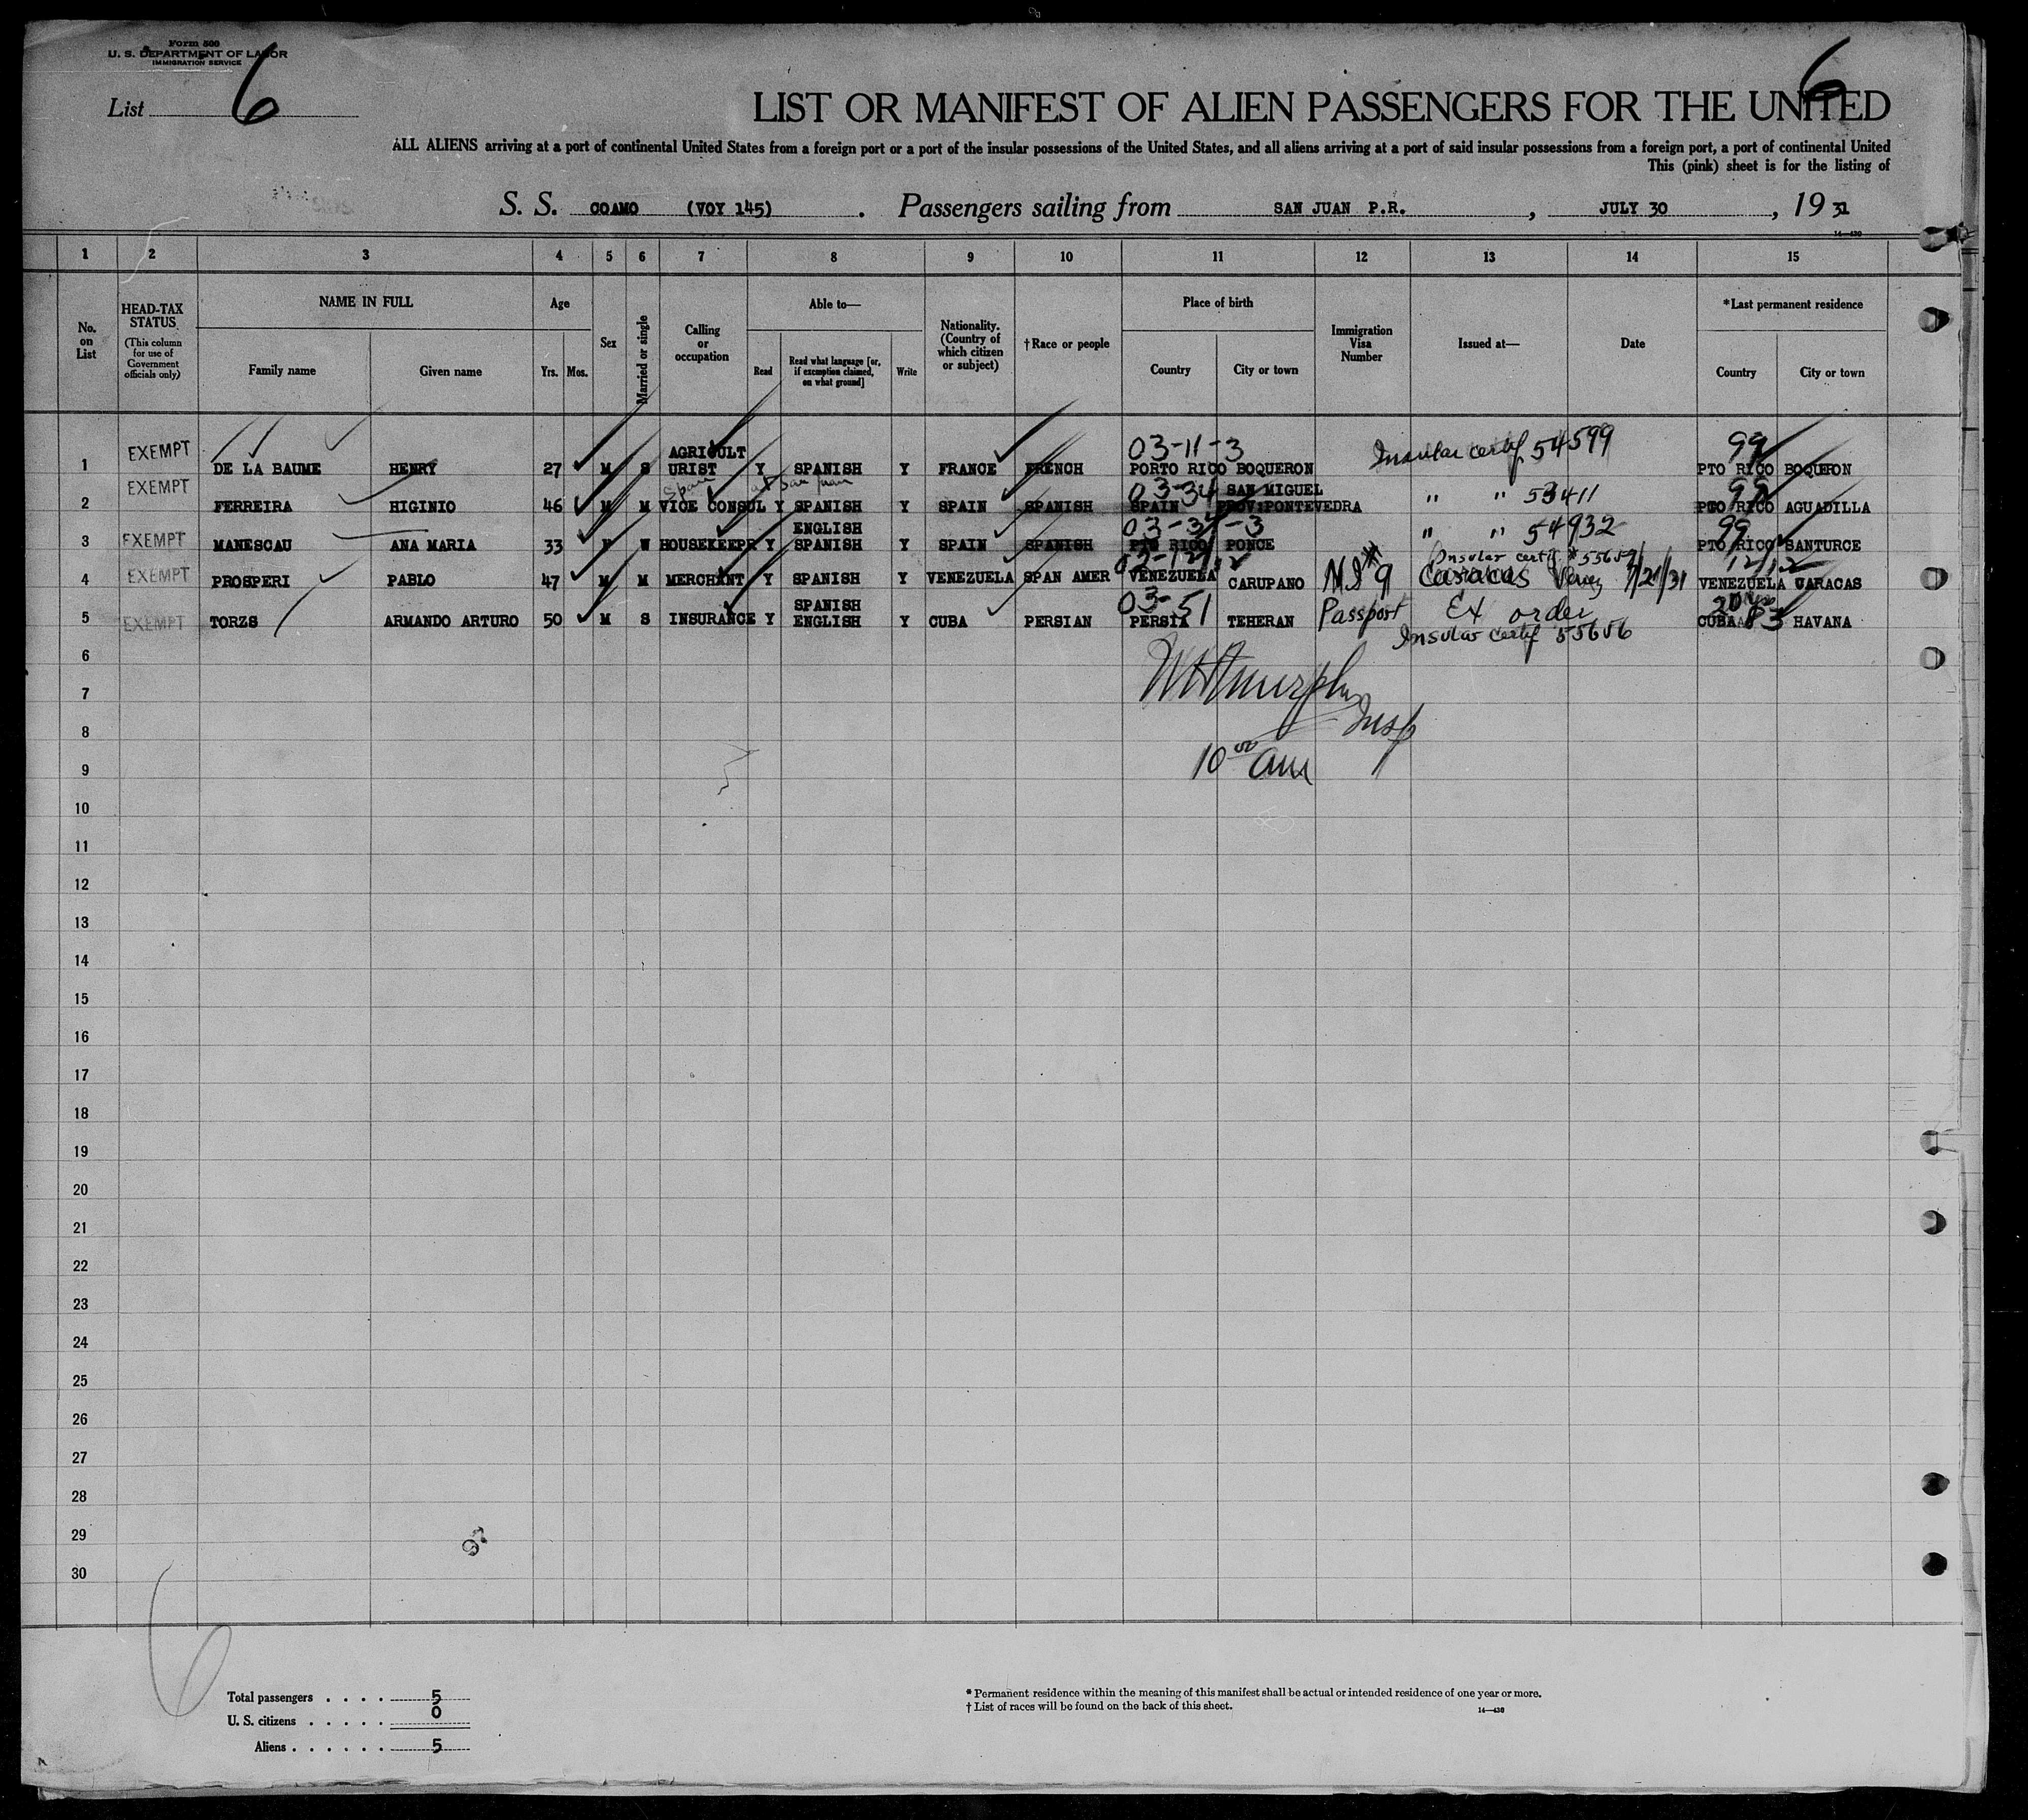 Form 500
U. S. DEPARTMENT OF LABOR
IMMIGRATION SERVICE
List 6
6
LIST OR MANIFEST OF ALIEN PASSENGERS FOR THE UNITED
ALL ALIENS arriving at a port of continental United States from a foreign port or a port of the insular possessions of the United States, and all aliens arriving at a port of said insular possessions from a foreign port, a port of continental United
This (pink) sheet is for the listing of
S. S. COAMO (VOY 145). Passengers sailing from SAN JUAN P.R., JULY 30, 1931
14—430
1 2 3 4 5 6 7 8 9 10 11 12 13 14 15
No. on List
HEAD-TAX STATUS (This column for use of Government officials only)
NAME IN FULL
Family name Given name
Age
Yrs. Mos.
Sex
Married or single
Calling or occupation
Able to—
Read
Read what language [or, if exemption claimed, on what ground]
Write
Nationality. (Country of which citizen or subject)
†Race or people
Place of birth
Country City or town
Immigration Visa Number
Issued at—
Date
*Last permanent residence
Country City or town
03-11-3 Insular certif 54599 99
1 EXEMPT DE LA BAUME HENRY 27 M S AGRICULT URIST Y SPANISH Y FRANCE FRENCH PORTO RICO BOQUERON PTO RICO BOQUERON
Spain at San Juan 03-34 " " 53411 99
2 EXEMPT FERREIRA HIGINIO 46 M M VICE CONSUL Y SPANISH Y SPAIN SPANISH SPAIN SAN MIGUEL PROV:PONTEVEDRA PTO RICO AGUADILLA
03-34-3 " " 54932 99
3 EXEMPT MANESCAU ANA MARIA 33 F W HOUSEKEEPR Y ENGLISH SPANISH Y SPAIN SPANISH PTO RICO PONCE PTO RICO SANTURCE
Insular certif #
4 EXEMPT PROSPERI PABLO 47 M M MERCHANT Y SPANISH Y VENEZUELA SPAN AMER VENEZUELA CARUPANO Caracas Venez 7/21/31 VENEZUELA CARACAS
03-51 Passport Ex order 83
5 EXEMPT TORZS ARMANDO ARTURO 50 M S INSURANCE Y SPANISH ENGLISH Y CUBA PERSIAN PERSIA TEHERAN CUBA HAVANA
Insular certif 55656
6
7
W H Murphy
Insp
8
10 00 am
9
10
11
12
13
14
15
16
17
18
19
20
21
22
23
24
25
26
27
28
29
30
6
Total passengers . . . . 5
U. S. citizens . . . . . 0
Aliens . . . . . . 5
* Permanent residence within the meaning of this manifest shall be actual or intended residence of one year or more.
† List of races will be found on the back of this sheet.
14—430